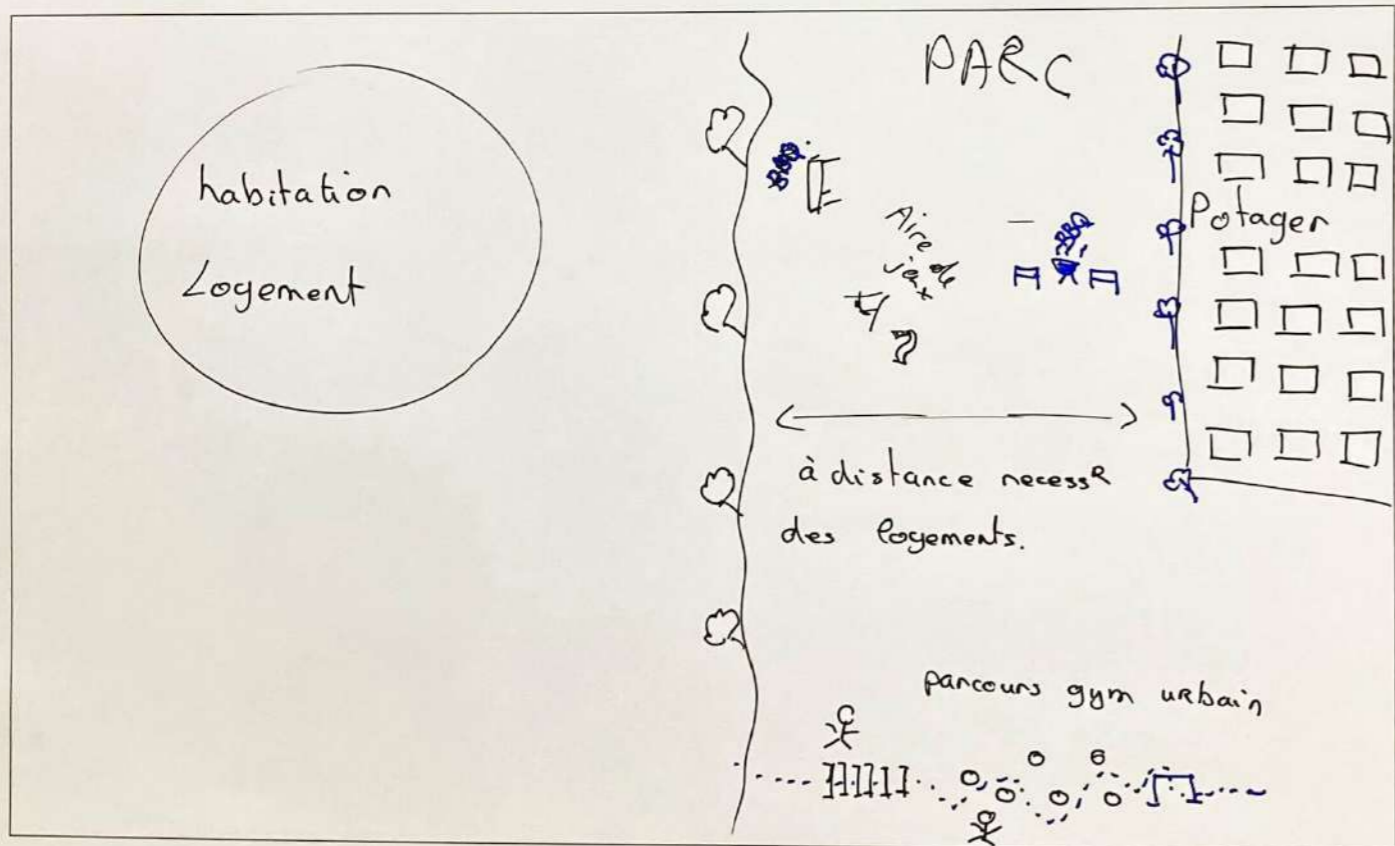 PARC
habitation
Logement
BBQ
Aire de
jeux
BBQ
Potager
à distance necessR
des logements.
parcours gym urbain